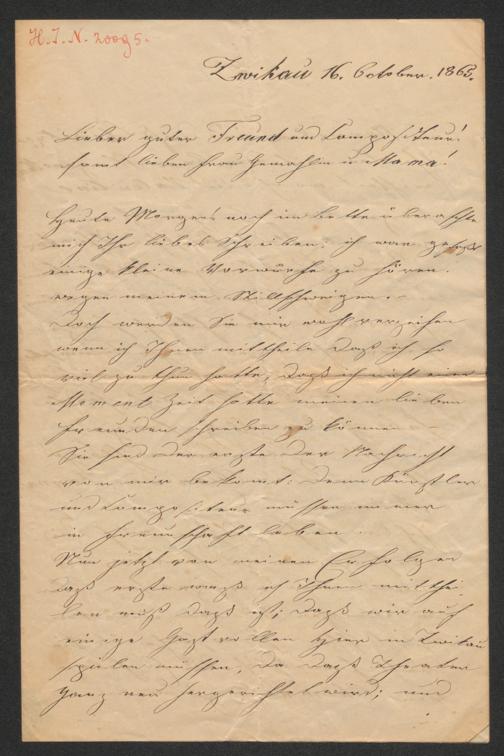 H. I. N. 20095.
Zwikau 16. October. 1865.
Lieber guter Freund und Compositeur!
samt lieben Frau Gemahlin u Mama!
Heute Morgens noch im Bette überraschte
mich Ihr liebes Schreiben; ich war gefaßt
einige kleine Vorwürfe zu hören.
wegen meinem Stillschweigen. –
Doch werden Sie mir wohl verzeihen
wenn ich Ihnen mittheile daß ich so
viel zu thun hatte, daß ich nicht einen
Moment Zeit hatte meinen lieben
Freunden schreiben zu können –
Sie sind der erste der Nachricht
von mir bekomt: denn Künstler
und Compositeur müssen immer
in Freunschaft leben.
Nun jetzt von meinen Erfolgen
daß erste waß ich Ihnen mitthei-
len muß daß ist; daß wir auch
einige Gastrollen Hier in Zwikau
spielen müssen, da daß Theater
ganz neu hergerichtet wird; und